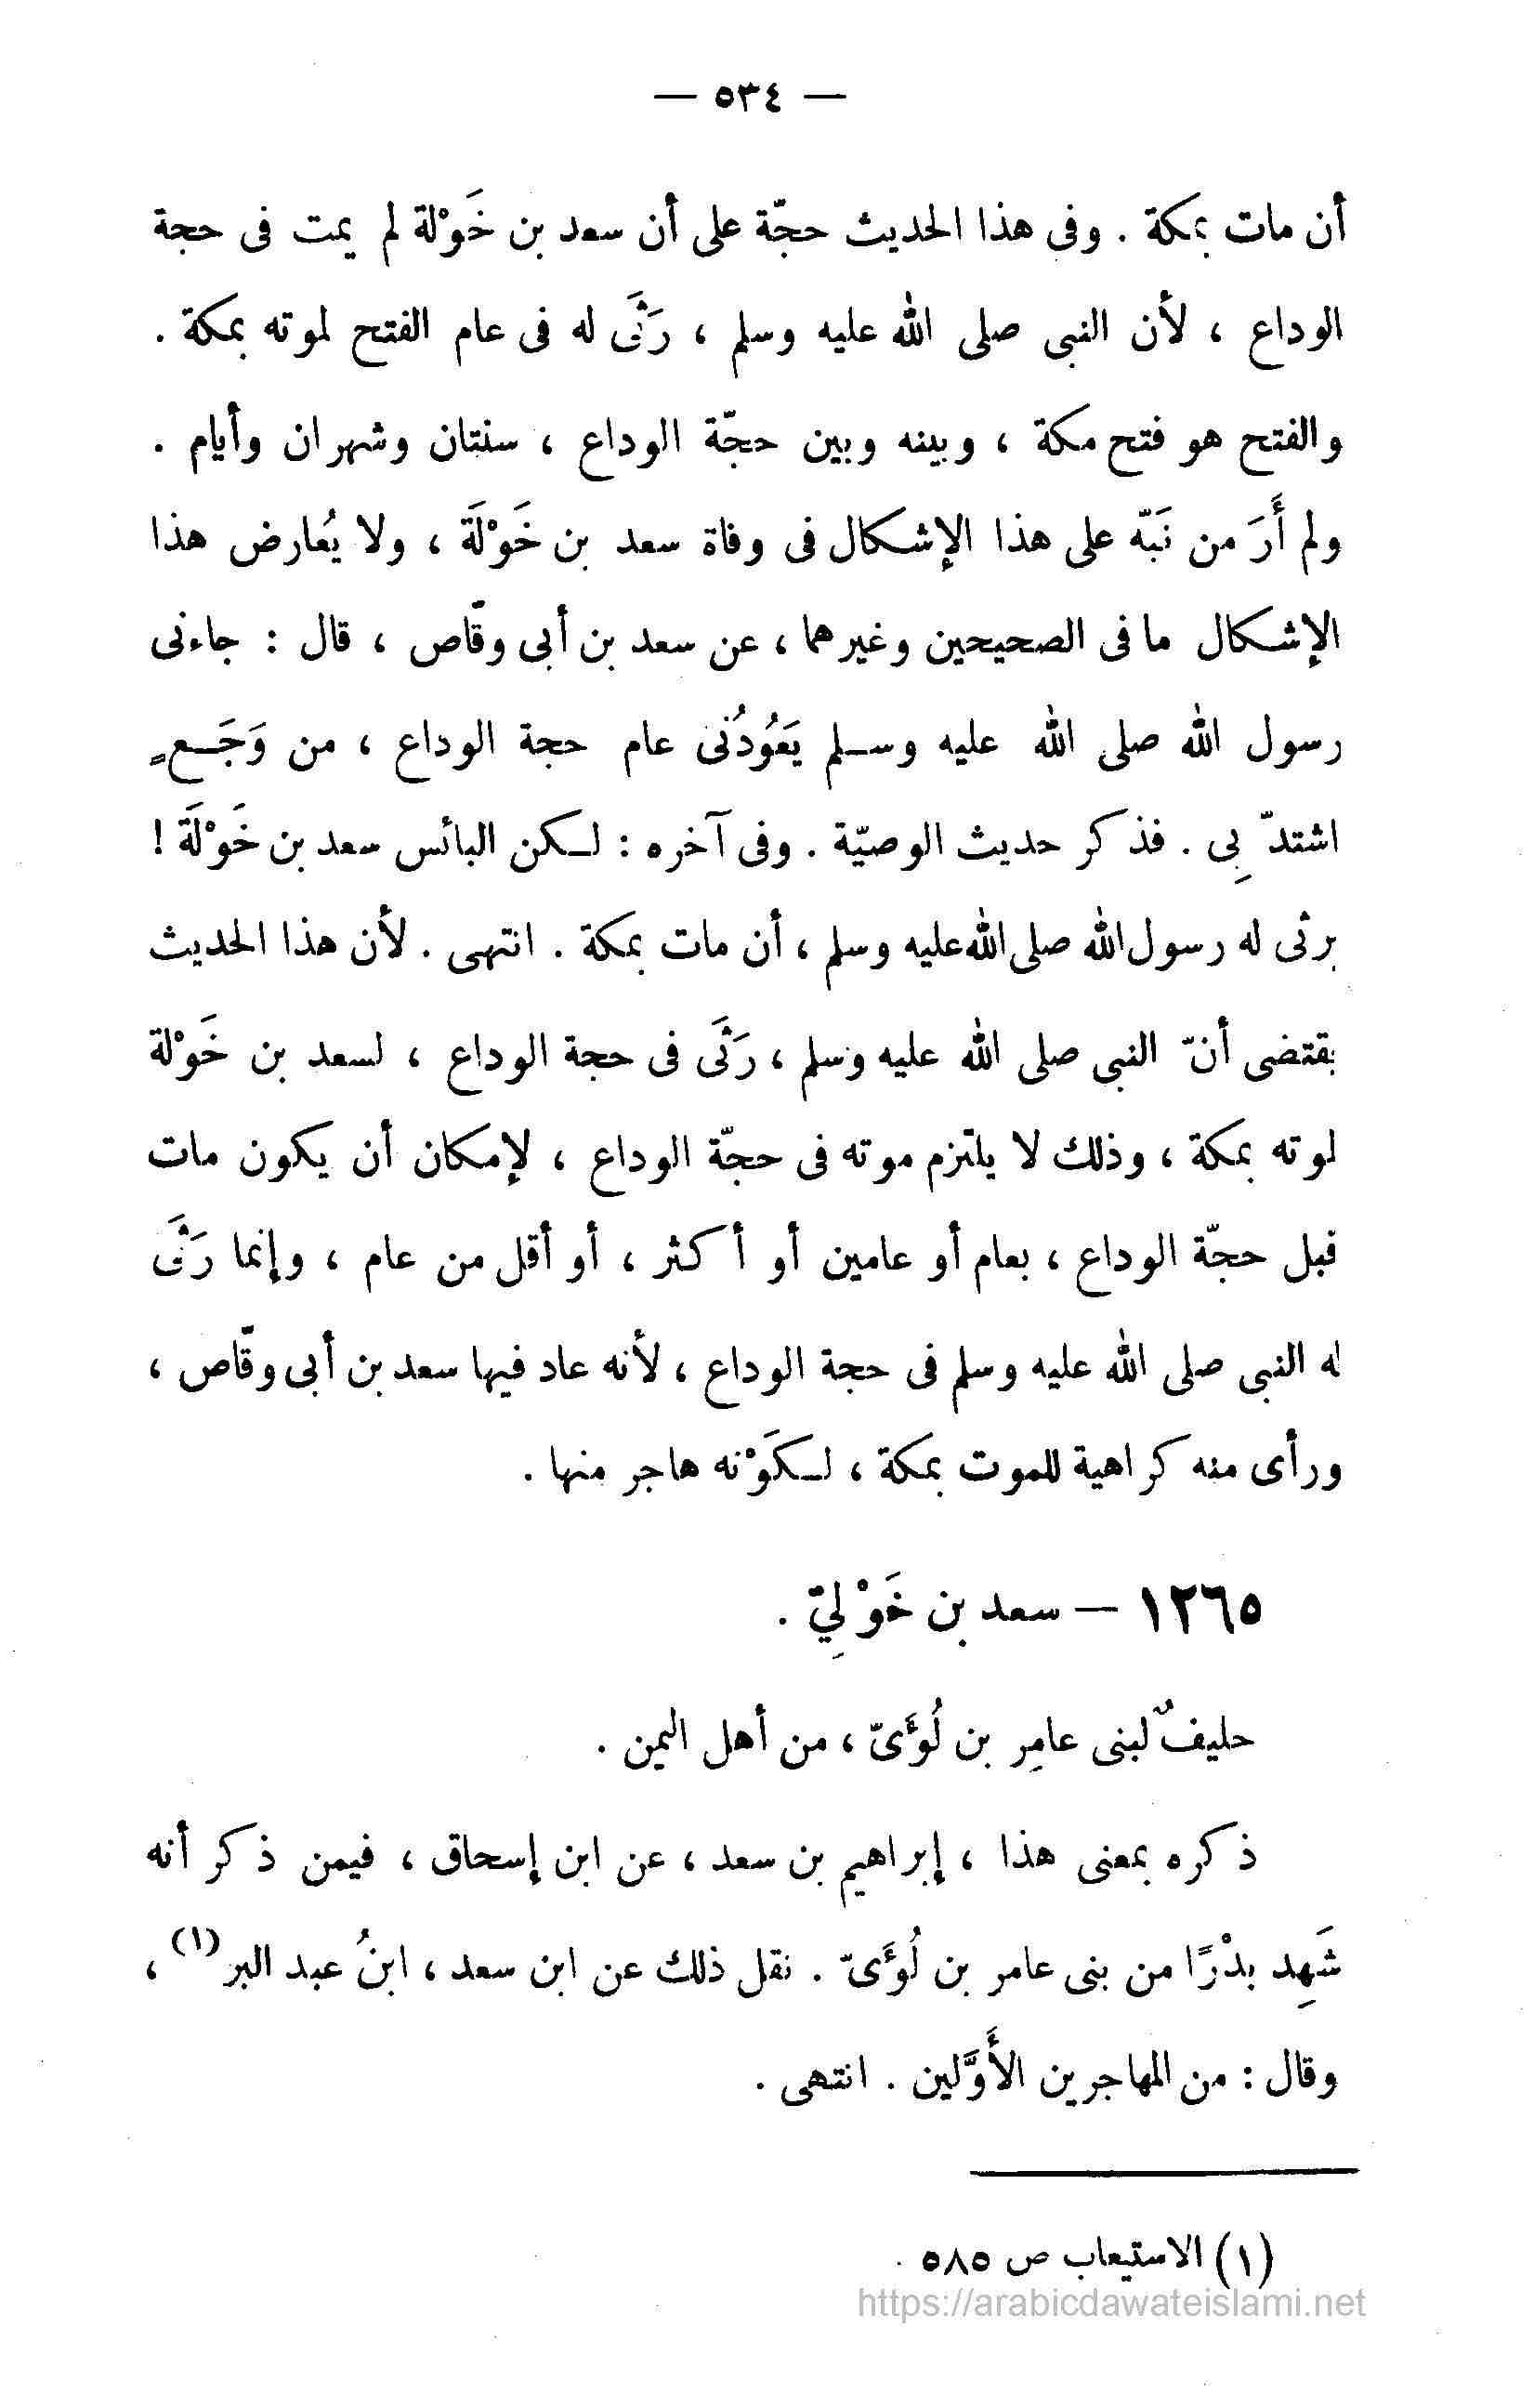 — ٥٣٤ —
أن مات بمكة . وفى هذا الحديث حجّة على أن سعد بن خَوْلة لم يمت فى حجة
الوداع ، لأن النبى صلى الله عليه وسلم ، رَثَى له فى عام الفتح لموته بمكة .
والفتح هو فتح مكة ، وبينه وبين حجّة الوداع ، سنتان وشهران وأيام .
ولم أَرَ من نَبّه على هذا الإشكال فى وفاة سعد بن خَوْلَة ، ولا يُعارض هذا
الإشكال ما فى الصحيحين وغيرهما ، عن سعد بن أبى وقّاص ، قال : جاءنى
رسول الله صلى الله عليه وسلم يَعُودُنى عام حجة الوداع ، من وَجَعٍ
اشتدّ بِى . فذكر حديث الوصيّة . وفى آخره : لكن البائس سعد بن خَوْلَة !
يرثى له رسول الله صلى الله عليه وسلم ، أن مات بمكة . انتهى . لأن هذا الحديث
يقتضى أنّ النبى صلى الله عليه وسلم ، رَثَى فى حجة الوداع ، لسعد بن خَوْلة
لموته بمكة ، وذلك لا يلتزم موته فى حجّة الوداع ، لإمكان أن يكون مات
قبل حجّة الوداع ، بعام أو عامين أو أكثر ، أو أقل من عام ، وإنما رَثَى
له النبى صلى الله عليه وسلم فى حجة الوداع ، لأنه عاد فيها سعد بن أبى وقّاص ،
ورأى منه كراهية للموت بمكة ، لكَوْنه هاجر منها .
١٢٦٥ — سعد بن خَوْلِيّ .
حليفٌ لبنى عامِر بن لُؤَىّ ، من أهل اليمن .
ذكره بمعنى هذا ، إبراهيم بن سعد ، عن ابن إسحاق ، فيمن ذكر أنه
شَهِد بدْرًا من بنى عامر بن لُؤَىّ . نقل ذلك عن ابن سعد ، ابنُ عبد البر (١) ،
وقال : من المهاجرين الأَوَّلين . انتهى .
(١) الاستيعاب ص ٥٨٥ .
https://arabicdawateislami.net